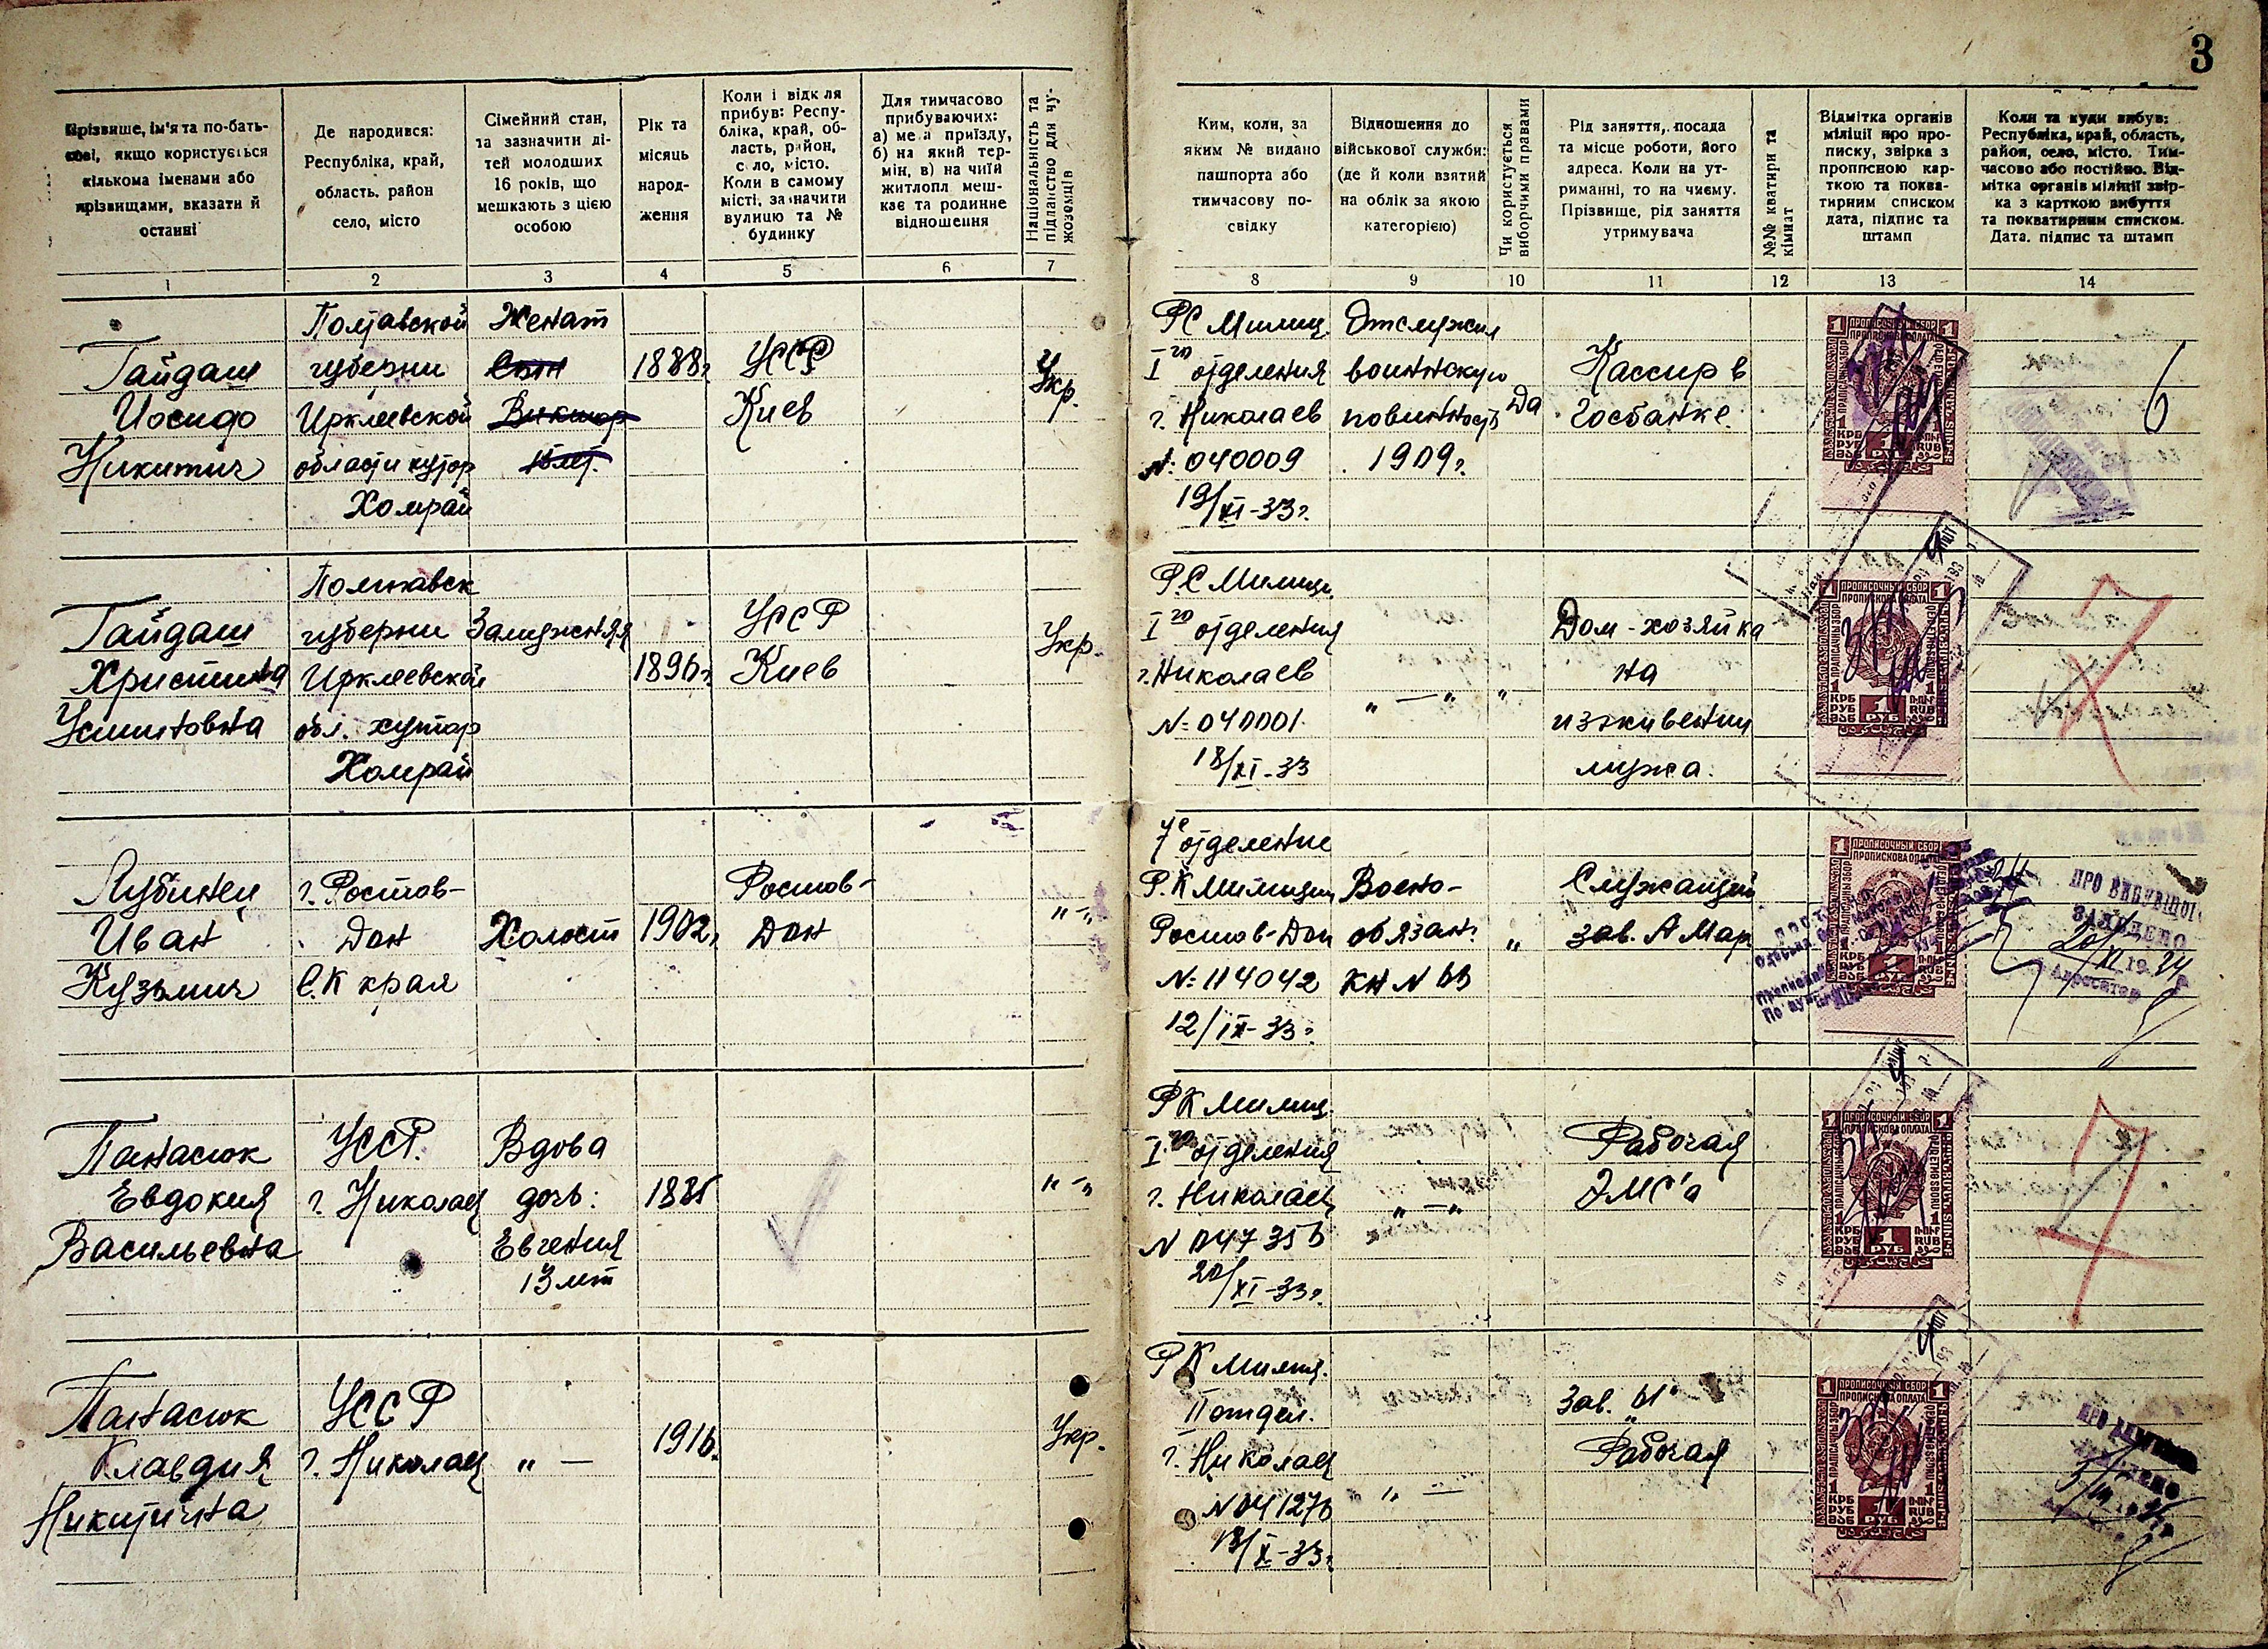 3
Прізвише, ім'я та по-бать-
кові, якщо користується
кількома іменами або
прізвищами, вказати й
останні
Де народився:
Республіка, край,
область. район
село, місто
Сімейний стан,
та зазначити ді-
тей молодших
16 років, що
мешкають з цією
особою
Рік та
місяць
народ-
ження
Коли і відкля
прибув: Респу-
бліка, край, об-
ласть, район,
село, місто.
Коли в самому
місті, зазначити
вулицю та №
будинку
Для тимчасово
прибуваючих:
а) мета приїзду,
б) на який тер-
мін, в) на чиїй
житлопл. меш-
кає та родинне
відношення
Національність та
підданство для чу-
жоземців
Ким, коли, за
яким № видано
пашпорта або
тимчасову по-
свідку
Відношення до
військової служби:
(де й коли взятий
на облік за якою
категорією)
Чи користується
виборчими правами
Рід заняття, посада
та місце роботи, його
адреса. Коли на ут-
риманні, то на чиєму.
Прізвище, рід заняття
утримувача
№№ кватири та
кімнат
Відмітка органів
міліції про про-
писку, звірка з
прописною кар-
ткою та поква-
тирним списком
дата, підпис та
штамп
Коли та куди вибув:
Республіка, край, область,
район, село, місто. Тим-
часово або постійно. Від-
мітка органів міліції звір-
ка з карткою вибуття
та покватирним списком.
Дата. підпис та штамп
1
2
3
4
5
6
7
8
9
10
11
12
13
14
Гайдаш
Иосифо
Никитич
Полтавской
губерни
Ирклеевской
области хутор
Хомрай
Женат
Сын
Виктор
1888г
УССР
Киев
Укр.
РС Милиц.
I го отделения
г. Николаев
№ 040009
19/XI-33г.
Отслужил
воинскую
повинность
1909г.
Да
Кассир в
Госбанке.
ПРОПИСОЧНЫЙ СБОР
ПРОПИСКОВА ОПЛАТА
КРБ
РУБ
1
РУБ
RUB
6
Гайдаш
Христина
Устиновна
Полтавск
губерни
Ирклеевской
обл. хутор
Хомрай
Замужняя
1896г.
УССР
Киев
Укр.
Р.С Милиц.
I го отделения
г. Николаев
№ 040001.
18/XI-33
" — "
"
Дом-хозяйка
на
иждивении
мужа.
ПРОПИСОЧНЫЙ СБОР
ПРОПИСКОВА ОПЛАТА
КРБ
РУБ
1
РУБ
RUB
7
Лубинец
Иван
Кузьмич
г. Ростов-
Дон
С.К края
Холост
1902г
Ростов-
Дон
" - "
7е отделение
Р.К милиции
Ростов-Дон
№ 114042
12/IX-33г.
Воено-
обязан.
"
Служащий
зав. А Мар
ПРОПИСОЧНЫЙ СБОР
ПРОПИСКОВА ОПЛАТА
КРБ
РУБ
RUB
ПРО ВИБУВШОГО
ЗАЯВЛЕНО
20/XI 1934
Адресатор
Панасюк
Евдокия
Васильевна
УССР.
г. Николаев
Вдова
дочь:
Евгения
13 лет
" - "
РК милиц.
I го отделения
г. Николаев
20/XI-33г.
" — "
Рабочая
ЭМС'а
ПРОПИСОЧНЫЙ СБОР
ПРОПИСКОВА ОПЛАТА
КРБ
РУБ
1
РУБ
RUB
7
Панасюк
Клавдия
Никитична
УССР
г. Николаев
" —
1916.
Укр.
РК милиц.
II отдел.
г. Николаев
№ 041276
18/X-33г.
" —
Зав. "61"
Рабочая
ПРОПИСОЧНЫЙ СБОР
ПРОПИСКОВА ОПЛАТА
КРБ
РУБ
1
РУБ
RUB